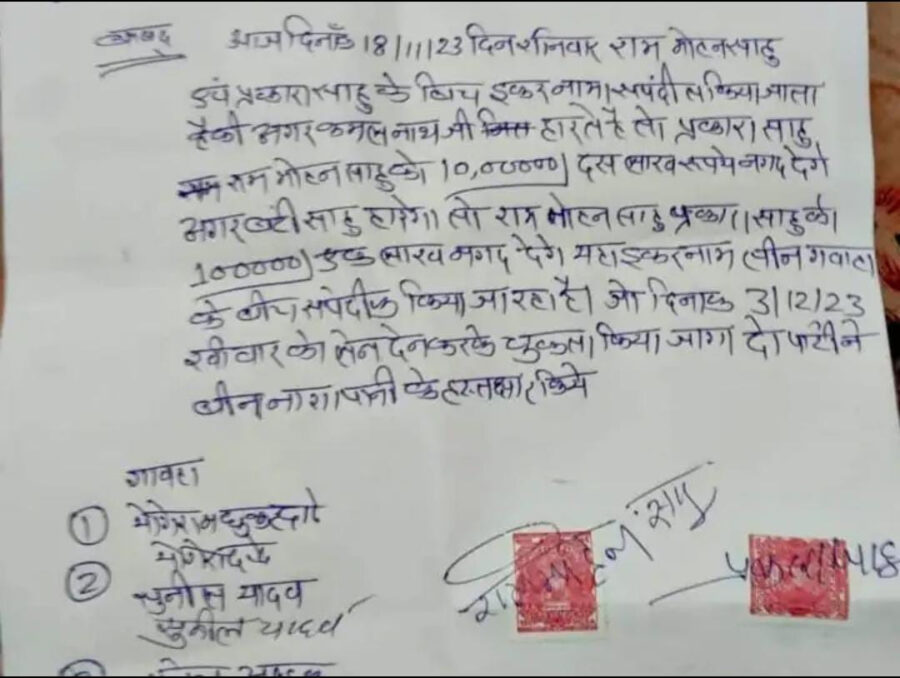 आज दिनाँक 18/11/23 दिन शनिवार राम मोहन साहु
एवं प्रकाश साहु के बिच इकरनामा सपंदीत किया जाता
है की अगर कमलनाथ जी हारते है तो प्रकाश साहु
राम मोहन साहु को 10,00000/ दस लाख रुपये नगद देगे
अगर बंटी साहु हारेगा तो राम मोहन साहु प्रकाश साहु को
100000/ एक लाख नगद देगे यहा इकरनाम तीन गवाहा
के बीच सपंदीक किया जा रहा है। जो दिनाक 3/12/23
रवीवार को लेन देन करके चुकता किया जागा दो पार्टी ने
बीन नाशा पानी के हस्ताक्षर किये
गावहा
①
② सुनील यादव
सुनील यादव
राम मोहन साहु
प्रकाश साहु